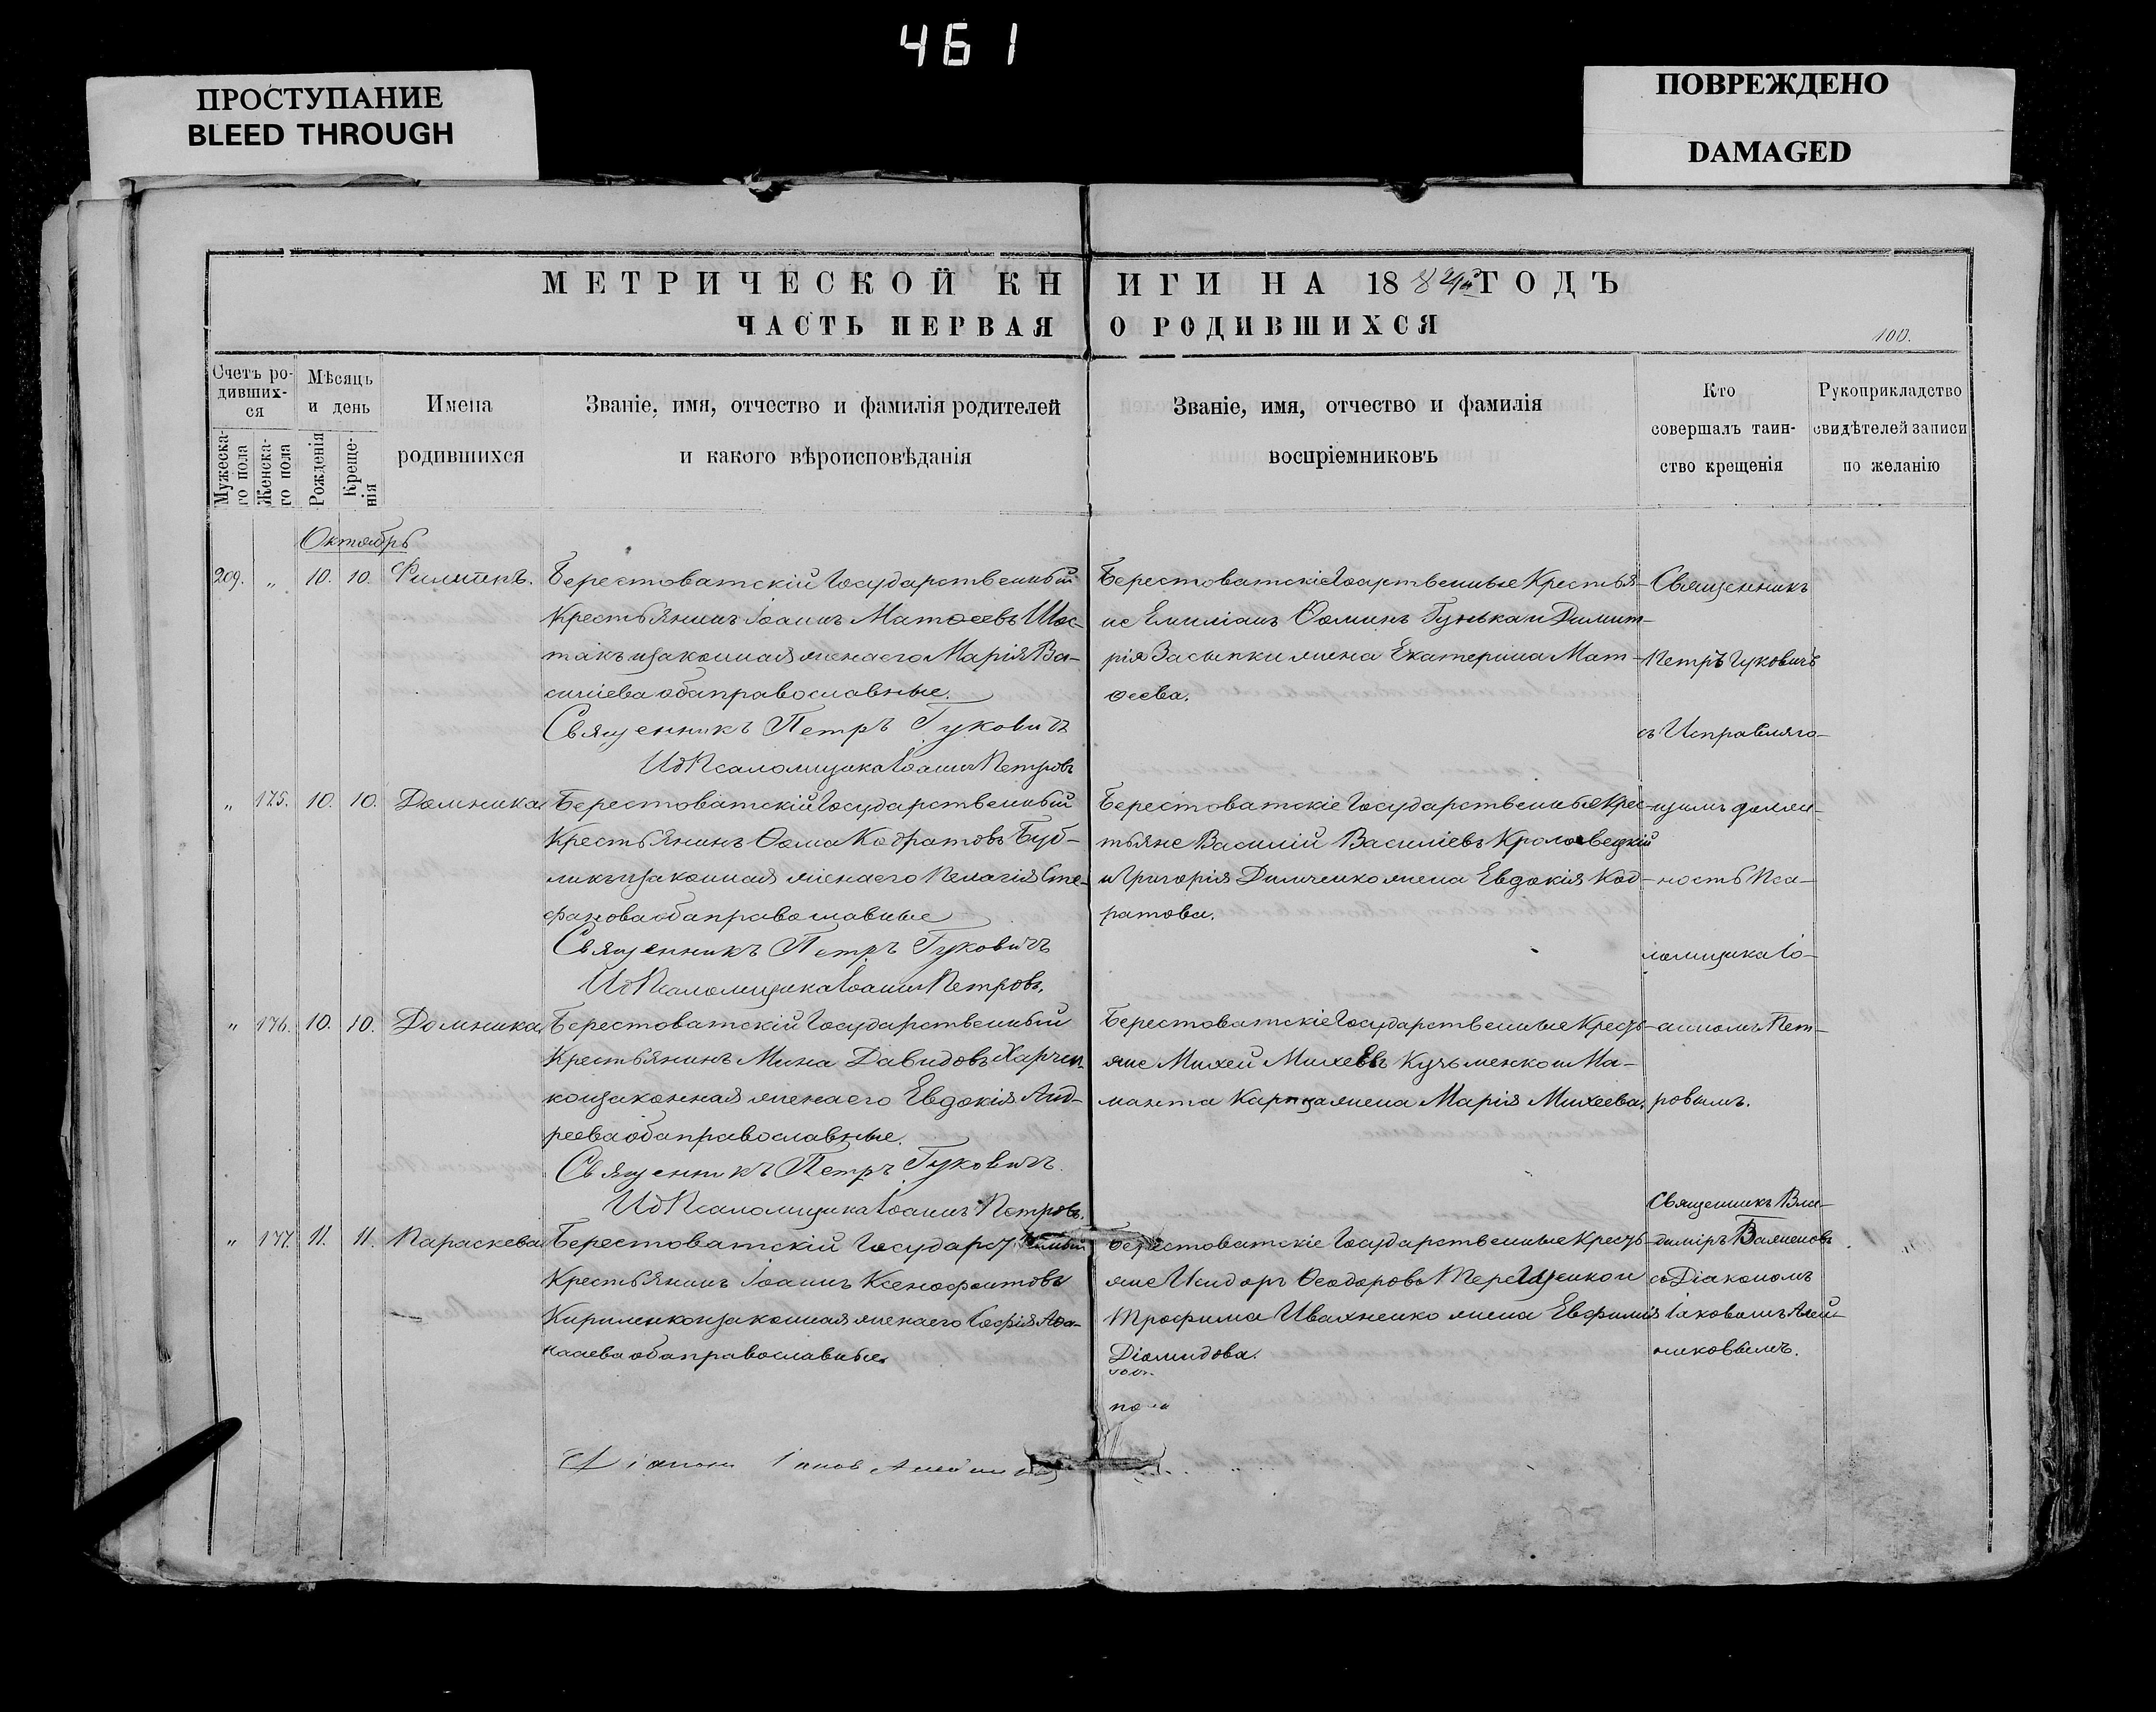 461
ПРОСТУПАНИЕ
BLEED THROUGH
ПОВРЕЖДЕНО
DAMAGED
МЕТРИЧЕСКОЙ КНИГИ НА 1884й ГОДЪ
ЧАСТЬ ПЕРВАЯ О РОДИВШИХСЯ
100.
Счетъ родившихся
Мужескаго пола
Женскаго пола
Мѣсяцъ и день
Рожденія
Крещенія
Имена
родившихся
Званіе, имя, отчество и фамилія родителей
и какого вѣроисповѣданія
Званіе, имя, отчество и фамилія
воспріемниковъ
Кто
совершалъ таин-
ство крещенія
Рукоприкладство
свидѣтелей записи
по желанію
Октябрь
209. „ 10. 10. Филиппъ.
Берестоватскій Государственный
Крестьянинъ Іоаннъ Матѳеевъ Шос-
такъ и законная жена его Марія Ва-
силіева оба православные.
Священникъ Петръ Гуковичъ
И д Псаломщика Іоаннъ Петровъ
Берестоватскіе Госарственные Крестья-
не Емиліанъ Ѳоминъ Гунька и Димит-
рія Засыпки жена Екатерина Мат-
ѳеева.
Священникъ
Петръ Гуковичъ
съ Исправляю-
„ 175. 10. 10. Домника
Берестоватскій Государственный
Крестьянинъ Ѳома Кодратовъ Буб-
ликъ и законная жена его Пелагія Сте-
фанова оба православные
Священникъ Петръ Гуковичъ
И д Псаломщика Іоаннъ Петровъ.
Берестоватскіе Государственные Крес-
тьяне Василій Василіевъ Кролевецкій
и Григорія Димченко жена Евдокія Код-
ратова.
щимъ должн-
ность Пса-
ломщика Іо-
„ 176. 10. 10. Домника
Берестоватскій Государственный
Крестьянинъ Мина Давидовъ Харчен-
ко и законная жена его Евдокія Анд-
реева оба православные.
Священникъ Петръ Гуковичъ
И д Псаломщика Іоаннъ Петровъ.
Берестоватскіе Государственные Кресть-
яне Михей Михеевъ Кузьменко и Ма-
манта Карпца жена Марія Михеева.
анномъ Пет-
ровымъ.
„ 177. 11. 11. Параскева
Берестоватскій Государственный
Крестьянинъ Іоаннъ Ксенофонтовъ
Кириленко и законная жена его Софія Аѳа-
насіева оба православные.
Берестоватскіе Государственные Кресть-
яне Исидоръ Ѳеодоровъ Терещенко и
Трофима Ивахненко жена Евфимія
Діомидова.
Священникъ Вла-
диміръ Баженовъ
съ Діакономъ
Іаковомъ Алей-
никовымъ.